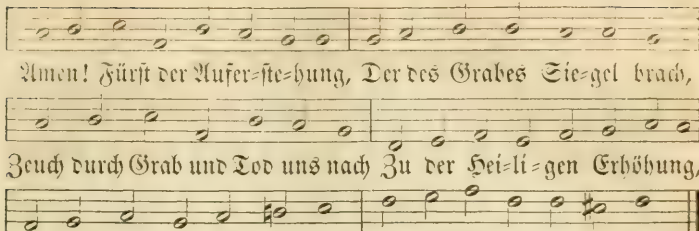 Amen! Fürst der Aufer-ste-hung, Der des Grabes Sie-gel brach,
Zeuch durch Grab und Tod uns nach Zu der Hei-li-gen Erhöhung,